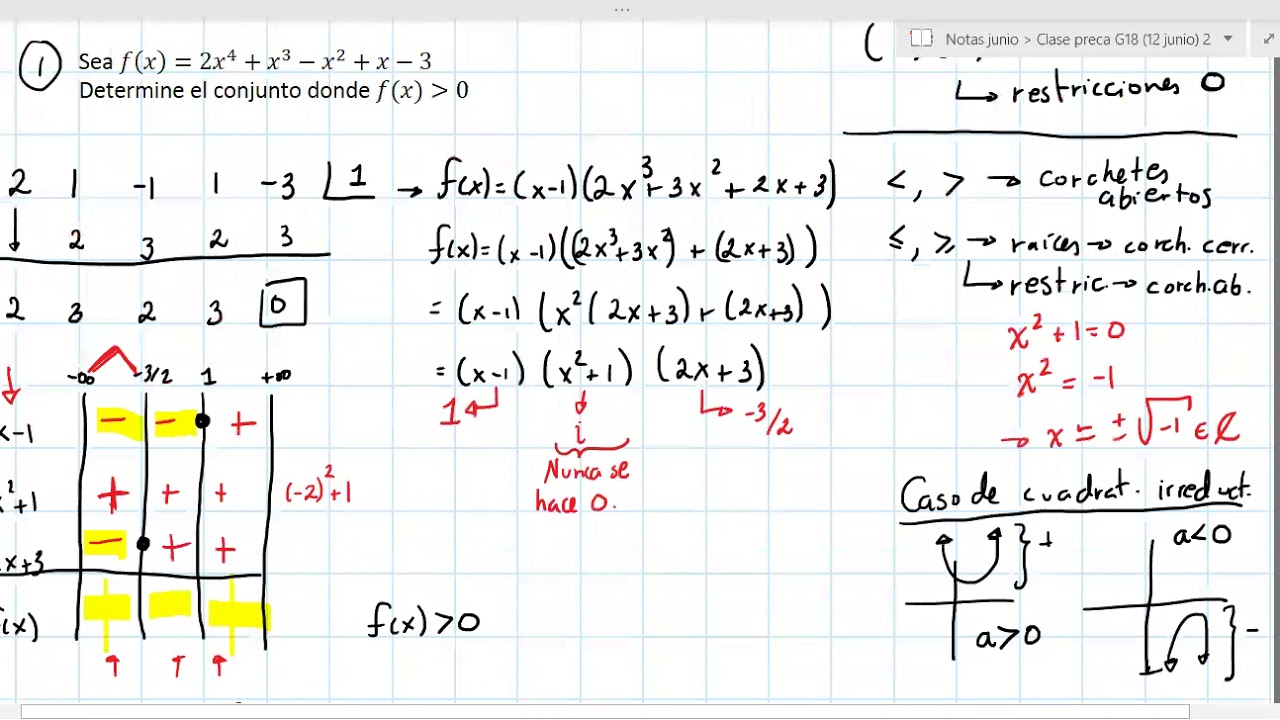 Notas junio > Clase preca G18 (12 junio) 2
1
Sea f(x) = 2x⁴ + x³ − x² + x − 3
Determine el conjunto donde f(x) > 0
↳ restricciones 0
2 1 -1 1 -3 | 1
↓ 2 3 2 3
2 3 2 3 0
→ f(x)=(x-1)(2x³+3x²+2x+3)
f(x)=(x-1)((2x³+3x²)+(2x+3))
=(x-1)(x²(2x+3)+(2x+3))
=(x-1)(x²+1)(2x+3)
1 i -3/2
Nunca se
hace 0.
-∞ -3/2 1 +∞
x-1 − − +
x²+1 + + + (-2)²+1
2x+3 − + +
f(x) + − +
f(x)>0
<, > → corchetes
abiertos
≤, ≥ → raíces → corch. cerr.
↳ restric. → corch. ab.
x²+1=0
x² = -1
→ x = ±√-1 ∈ ℂ
Caso de cuadrat. irreduct.
+ a<0
a>0 −